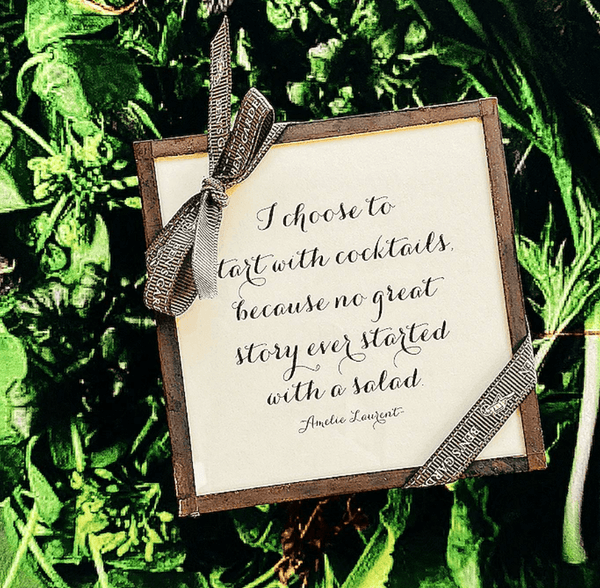 I choose to
tart with cocktails,
because no great
story ever started
with a salad.
-Amelie Laurent-